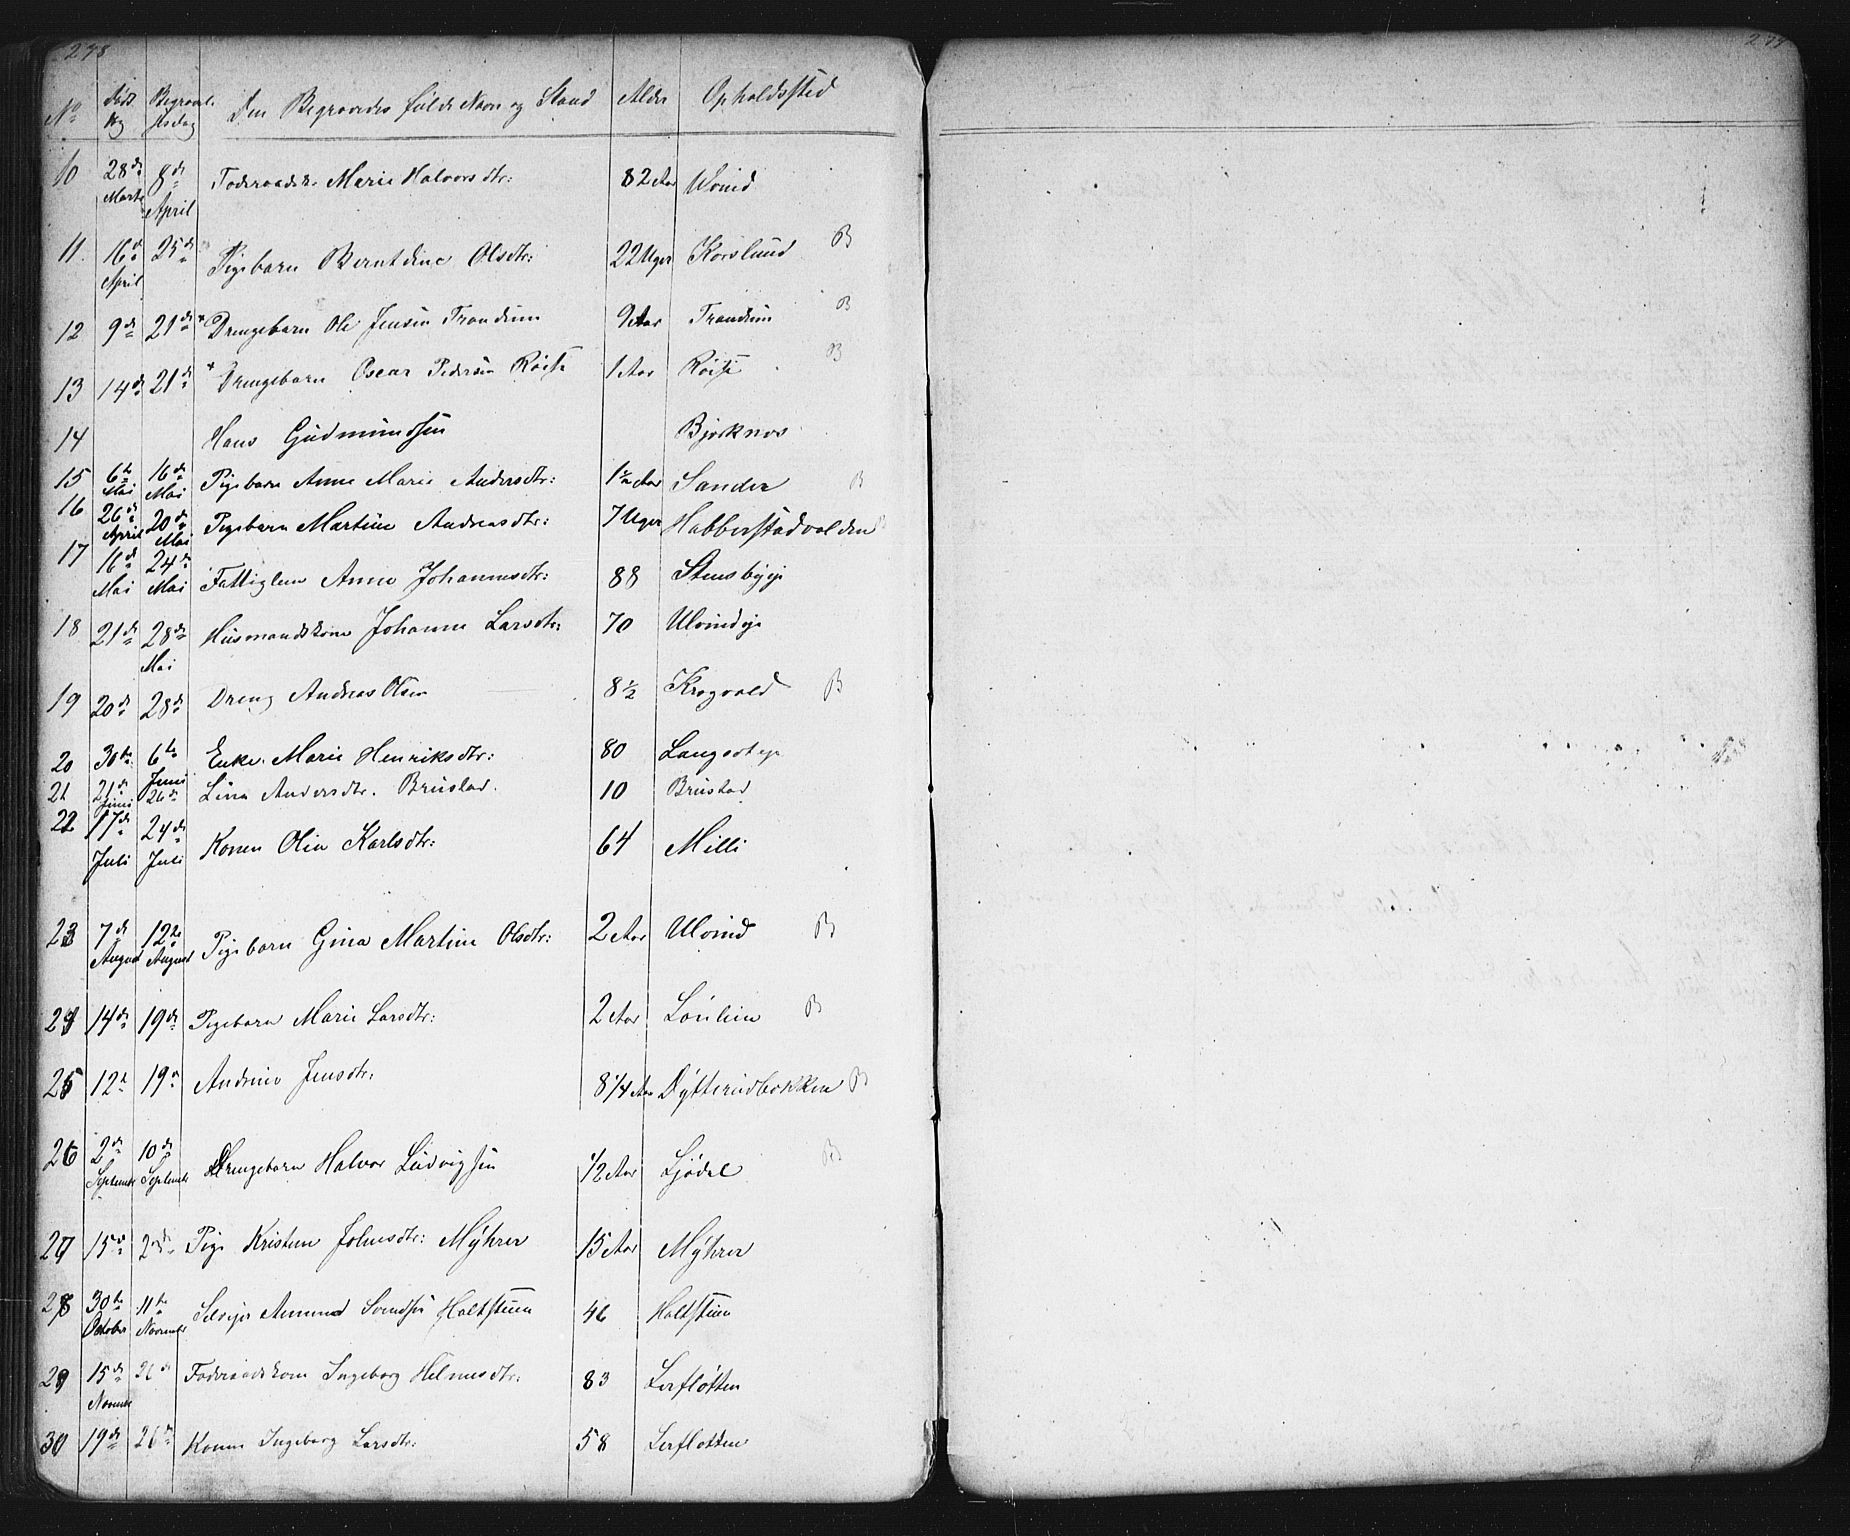 278
No Døds Dag Begravelsesdag Den Begravedes fulde Navn og Stand Alder Opholdssted
10 28de Marts 8de April Føderaadsk. Marie Halvorsdtr: 82 Aar Ulvind
11. 16de April 25de Pigebarn Berntdine Olsdtr: 22 Uger Korslund B
12 9de 21de * Drengebarn Ole Jensen Trandum 9 Aar Trandum B
13 14de 21de * Drengebarn Oscar Pedersen Røise 1 Aar Røise B
14 Hans Gudmundsen Bjørknes
15 6te Mai 16de Mai Pigebarn Anne Marie Andersdtr: 1½ Aar Sander B
16 26de April 20de Mai Pigebarn Martine Andreasdtr: 7 Uger Habberstadvolden B
17 16de Mai 24de Mai Fattiglem Anne Johannesdtr: 88 Stensbyeje
18 21de 28de Mai Husmandskone Johanne Larsdtr: 70 Ulvindeje
19 20de 28de Dreng Andreas Olsen 8½ Krogvold B
20 30te 6te Juni Enke Marie Henriksdtr: 80 Langseteje
21 21de Juni 26de Lina Andersdtr. Brustad. 10 Brustad
22 17de Juli 24de Juli Konen Olia Karlsdtr: 64 Milli
23 7de August 12te August Pigebarn Gina Martine Olsdtr: 2 Aar Ulvind B
24 14de 19de Pigebarn Marie Larsdtr: 2 Aar Lønlien B
25 12te 19de Andrine Jensdtr: 8 1/4 Aar Dytterudbakken B
26 2de September 10de September Drengebarn Halvor Ludvigsen 1/2 Aar Ljødal B
27 15de 22de Pige Kristine Johnsdtr: Myhrer 15 Aar Myhrer
28 30te October 11te November Selvejer Amund Svendsen Holtstuen 46 Holtstuen
29 15de November 26de Føderaadskone Ingeborg Helmersdtr: 83 Lerfløtten
30 19de 26de Konen Ingeborg Larsdtr: 58 Lerfløtten
279